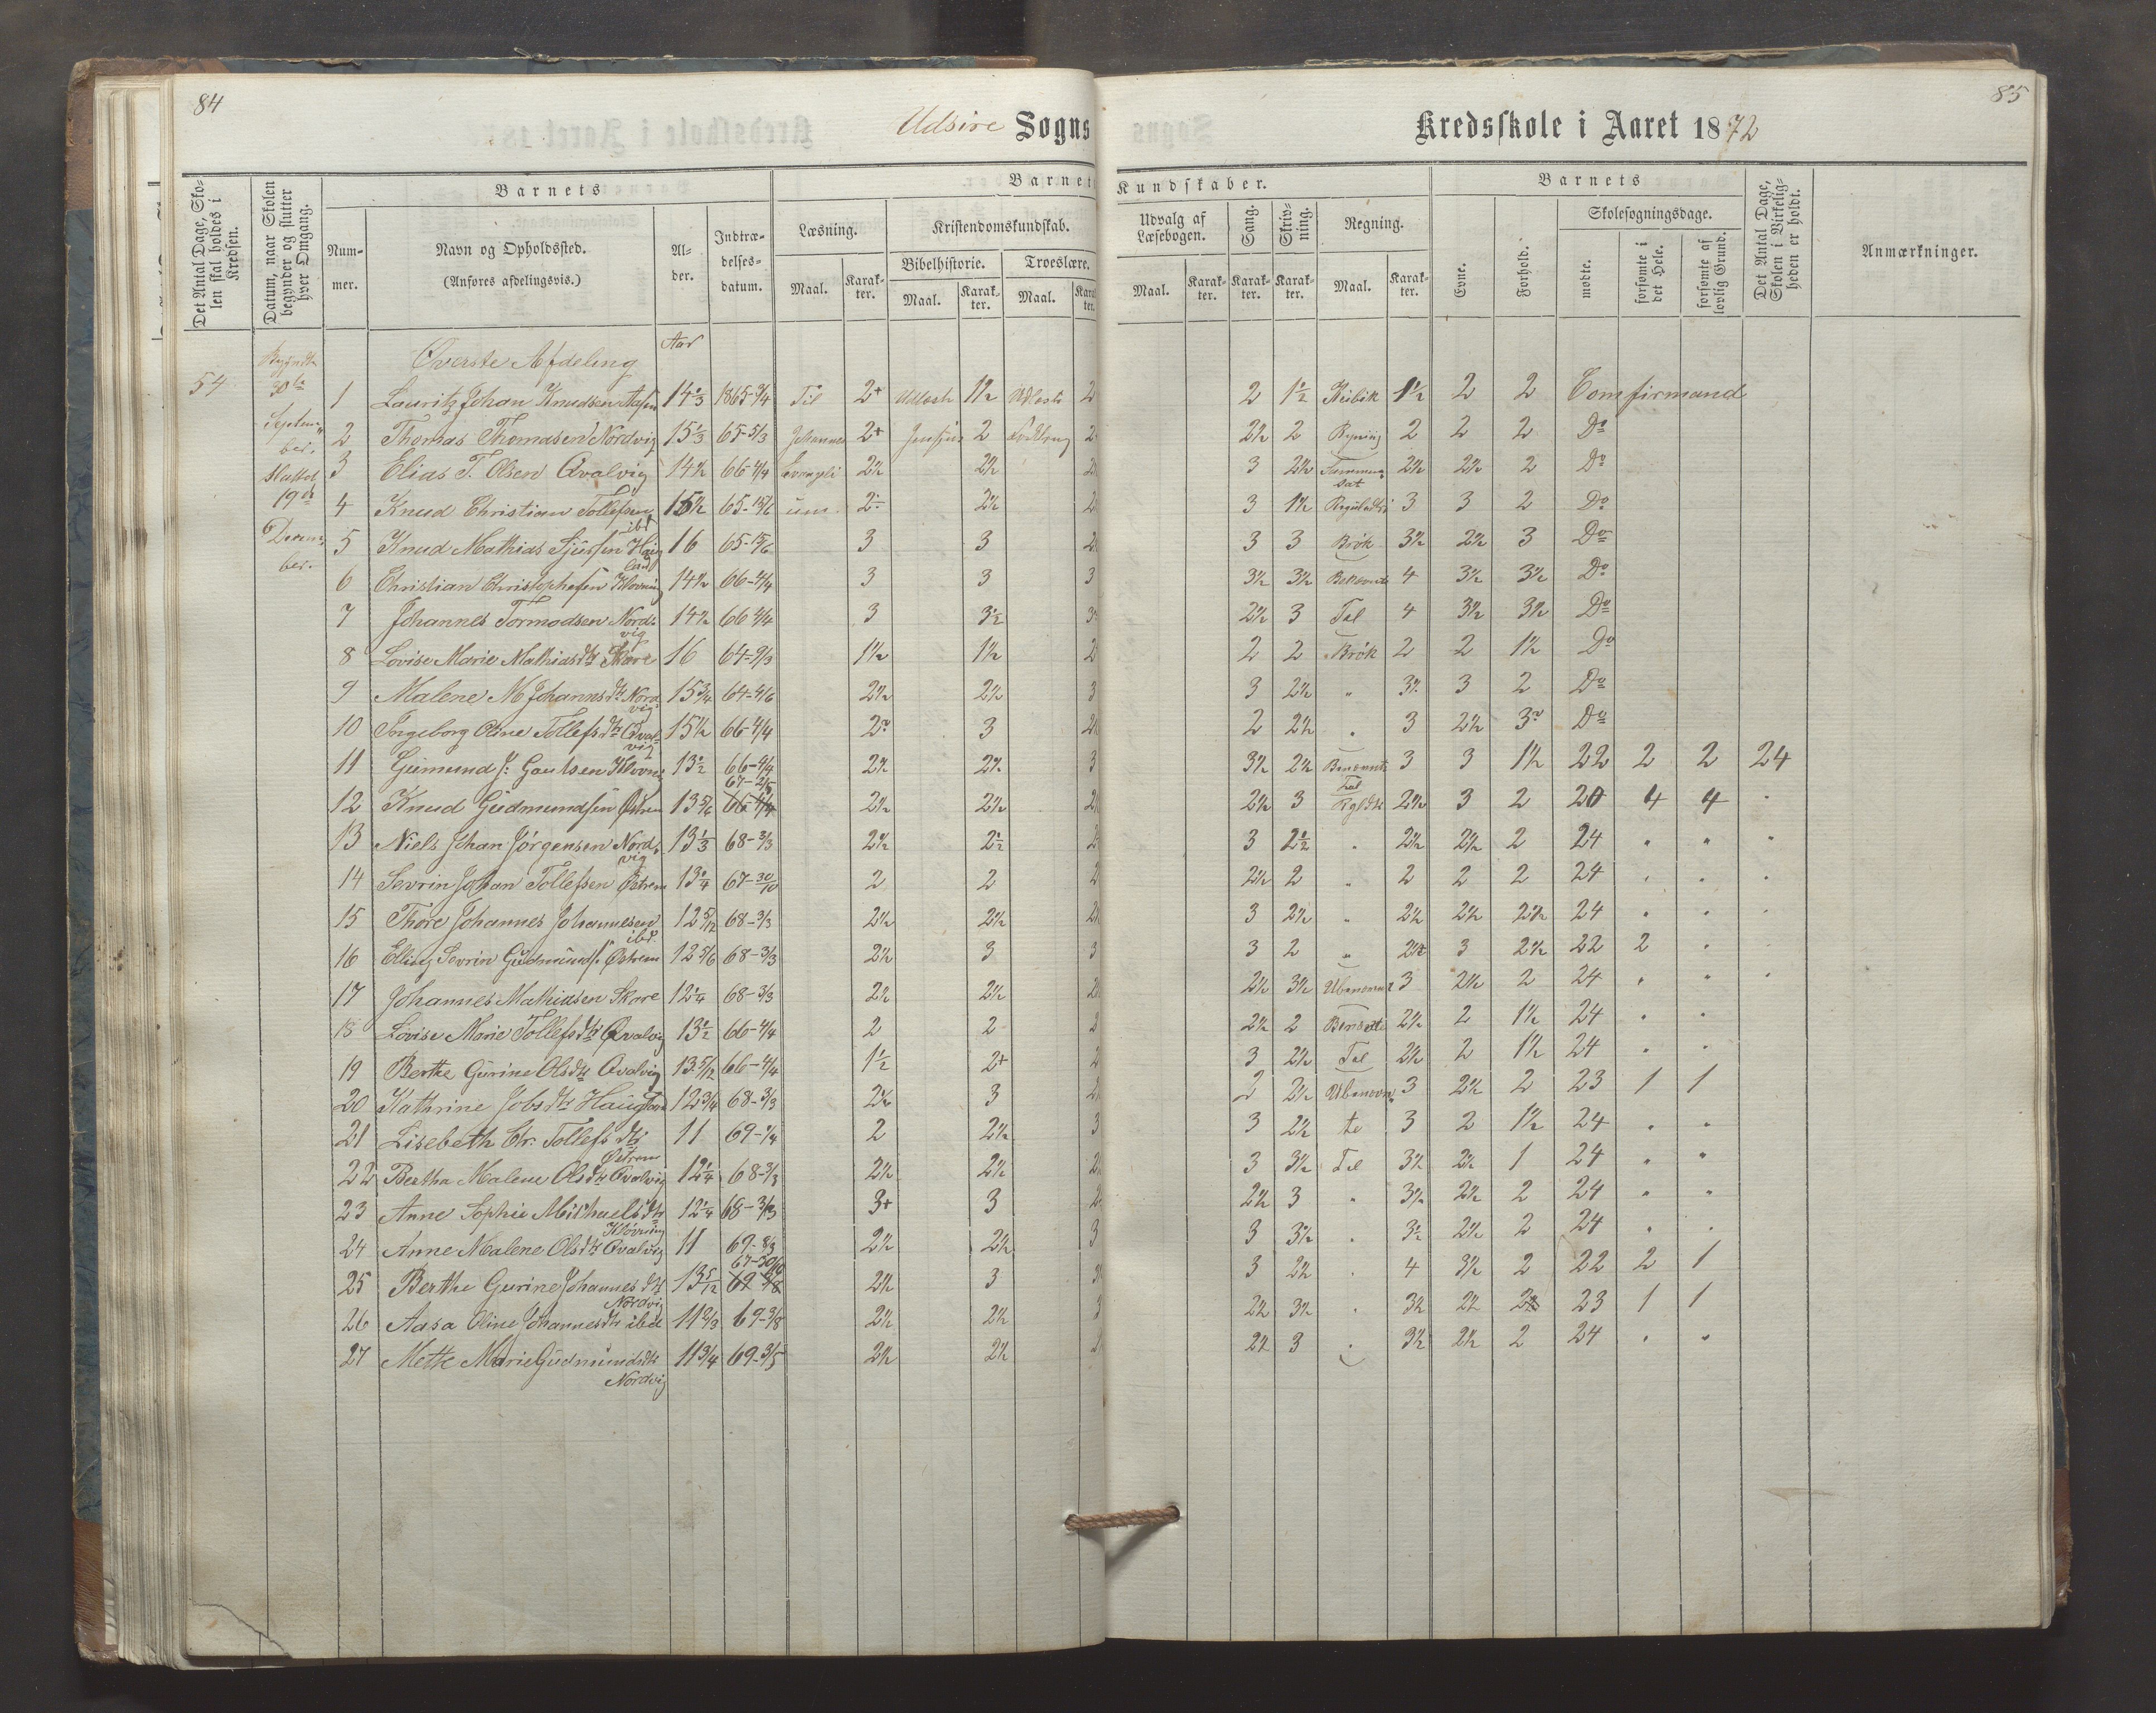 84
Udsire Sogns
Kredsskole i Aaret 1872
85
Det Antal Dage, Skolen skal holdes i Kredsen.
Datum, naar Skolen begynder og slutter hver Omgang.
Barnets
Nummer.
Navn og Opholdssted.
(Anføres afdelingsvis.)
Alder.
Indtrædelsesdatum.
Barnets
Kundskaber.
Læsning.
Maal.
Karakter.
Kristendomskundskab.
Bibelhistorie.
Maal.
Karakter.
Troeslære.
Maal.
Karakter.
Udvalg af Læsebogen.
Maal.
Karakter.
Sang.
Karakter.
Skrivning.
Karakter.
Regning.
Maal.
Karakter.
Barnets
Evne.
Forhold.
Skolesøgningsdage.
mødte.
forsømte i det Hele.
forsømte af lovlig Grund.
Det Antal Dage, Skolen i Virkeligheden er holdt.
Anmærkninger.
54
30te
September.
Sluttet
19de
December.
Øverste Afdeling
Aar
1 Lauritz Johan Knudsen Aasen 14 1865 Til 2+ 1½ 2 2 1½ Kubik 1½ 2 2 Comfirmand
2 Thomas Thomasen Nordvig 15⅓ 65-5/3 Johannes 2+ 2 2½ 2 2 2 2 Do
3 Elias T. Olsen Qvalvig 14½ 66-4/4 Evangeli 2½ 2½ 3 2½ 2½ 2½ 2 Do
4 Knud Christian Tollefsen ibd 15½ um. 2½ 3 1½ 3 3 2 Do
5 Knud Mathias Sjursen Haugland 16 3 3 3 3 Brøk 3½ 2½ 3 Do
6 Christian Christophersen Klovning 14½ 66-4/4 3 3 3 3½ 3½ Benævnte 4 3½ 3½ Do
7 Johannes Tormodsen Nordvig 14½ 66 4/4 3 3½ 2½ 3 Tal 4 3½ 3½ Do
8 Lovise Marie Mathiasdtr Skare 16 64-9/3 1½ 1½ 2 2 2 Brøk 2 2 1½ Do
9 Malene M Johannsdtr Nordvig 15¾ 64-4/6 2½ 2½ 3 3 2½ " 3½ 3 2 Do
10 Ingeborg Oline Tollefsdtr Qvalvig 15½ 66-4/4 3 2 2½ " 3 2½ Do
11 Gutsen Klovn. 13½ 66-4/4 2½ 2½ 3 3½ 2½ 3 3 1½ 22 2 2 24
12 Knud Gudmundsen Østrem 13 5/6 67-2/5 66-4/4 2½ 2½ 2½ 3 Tal 2½ 3 2 20 4 4 "
13 Niels Johan Jørgensen Nordvig 13⅓ 68-3/3 2½ 2½ 3 2½ " 2½ 2½ 2 24 " " "
14 Sevrin Johan Tollefsen Østrem 13¼ 67-30/10 2 2 2 2½ 2 " 2 2 2 24 " " "
15 Thore Johannes Johannesen ibd. 12 5/12 68-3/3 2½ 2½ 3 2½ " 2½ 2½ 2½ 24 " " "
16 Elling Sevrin Gudmunds. Østrem 12 5/6 68-3/3 2½ 3 3 3 2 " 3 2½ 22 2 "
17 Johannes Mathiasen Skare 12¼ 68-3/3 2½ 2½ 2½ 3½ Ubenævnte 3 2½ 2 24 " " "
18 Lovise Marie Tollefsdtr Qvalvig 13½ 66-4/4 2 2 2 2½ 2 2½ 2 1½ 24 " "
19 Berthe Gurine Olsdtr Qvalvig 13 5/12 66-4/4 1½ 2+ 2 3 2½ Tal 2½ 2 1½ 24 " "
20 Kathrine Jobsdtr Haugland 12¾ 68-3/3 2½ 3 2 2½ Ubenævn- 3 2½ 2 23 1 1
21 Lisebeth Chr. Tollefsdtr Østrem 11 69-1/4 2 2½ 3 3 2½ te 3 2 1½ 24 " "
22 Bertha Malene Olsdtr Qvalvig 12¼ 68-3/3 2½ 2½ 3 3½ Tal 3½ 2½ 1 24 " "
23 Anne Sophie Michaelsdtr Klovning 12¼ 68-3/3 3+ 3 2½ 3 " 3½ 2½ 2 24 " "
24 Anne Malene Olsdtr Qvalvig 11 69-8/3 2½ 2½ 3 3 3½ " 3½ 2½ 2 24 " "
25 Berthe Gurine Johannesdtr Nordvig 13 5/12 67-30/10 2½ 3 3 2½ " 4 3½ 2 22 2 1
26 Aasa Oline Johannesdtr ibd 11⅔ 69-3/8 2½ 2½ 3 2½ 3½ " 3½ 2½ 23 1 1
27 Mette Marie Gudmundsdtr Nordvig 11¾ 69-3/5 2½ 2½ 2½ 3 " 3½ 2½ 2 24 " "